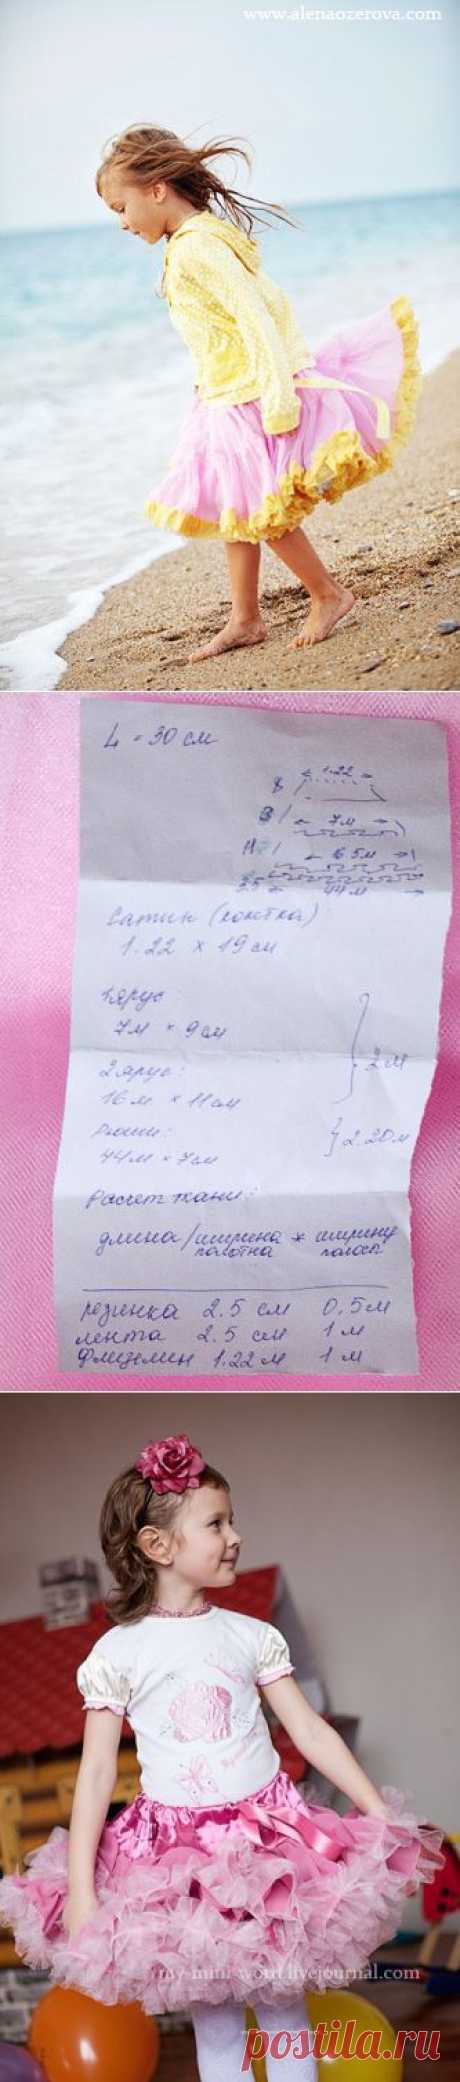 www.alenaozerova.com
L = 30 см
1.22
7м
16.5м
44м
Сатин (кокетка)
1.22 × 19 см
1 ярус:
7м × 9см
2 ярус:
16м × 11см
2м
Рюши:
44м × 7см
2.20м
Расчет ткани:
длина/ширина полотна * ширину полосы
резинка 2.5 см 0,5м
лента 2.5 см 1 м
Флизелин 1.22м 1 м
livejournal.com
postila.ru